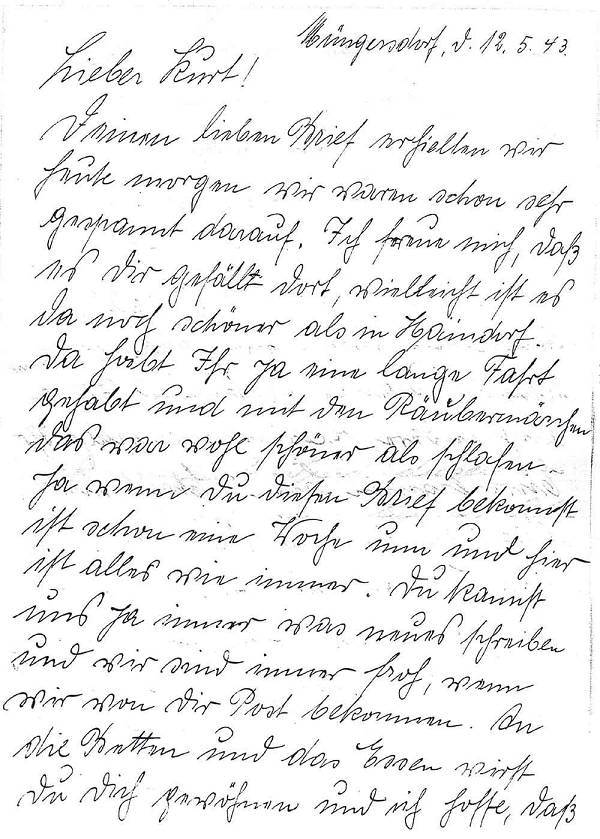 Müngersdorf, d. 12. 5. 43.
Lieber Kurt!
Deinen lieben Brief erhielten wir
heute morgen wir waren schon sehr
gespannt darauf. Ich freue mich, daß
es dir gefällt dort, vielleicht ist es
da noch schöner als in Haindorf.
Da habt Ihr ja eine lange Fahrt
gehabt und mit den Räubermärchen
das war wohl schöner als schlafen.
Ja wenn du diesen Brief bekommst
ist schon eine Woche um und hier
ist alles wie immer. Du kannst
uns ja immer was neues schreiben
und wir sind immer froh, wenn
wir von dir Post bekommen. An
die Betten und das Essen wirst
du dich gewöhnen und ich hoffe, daß